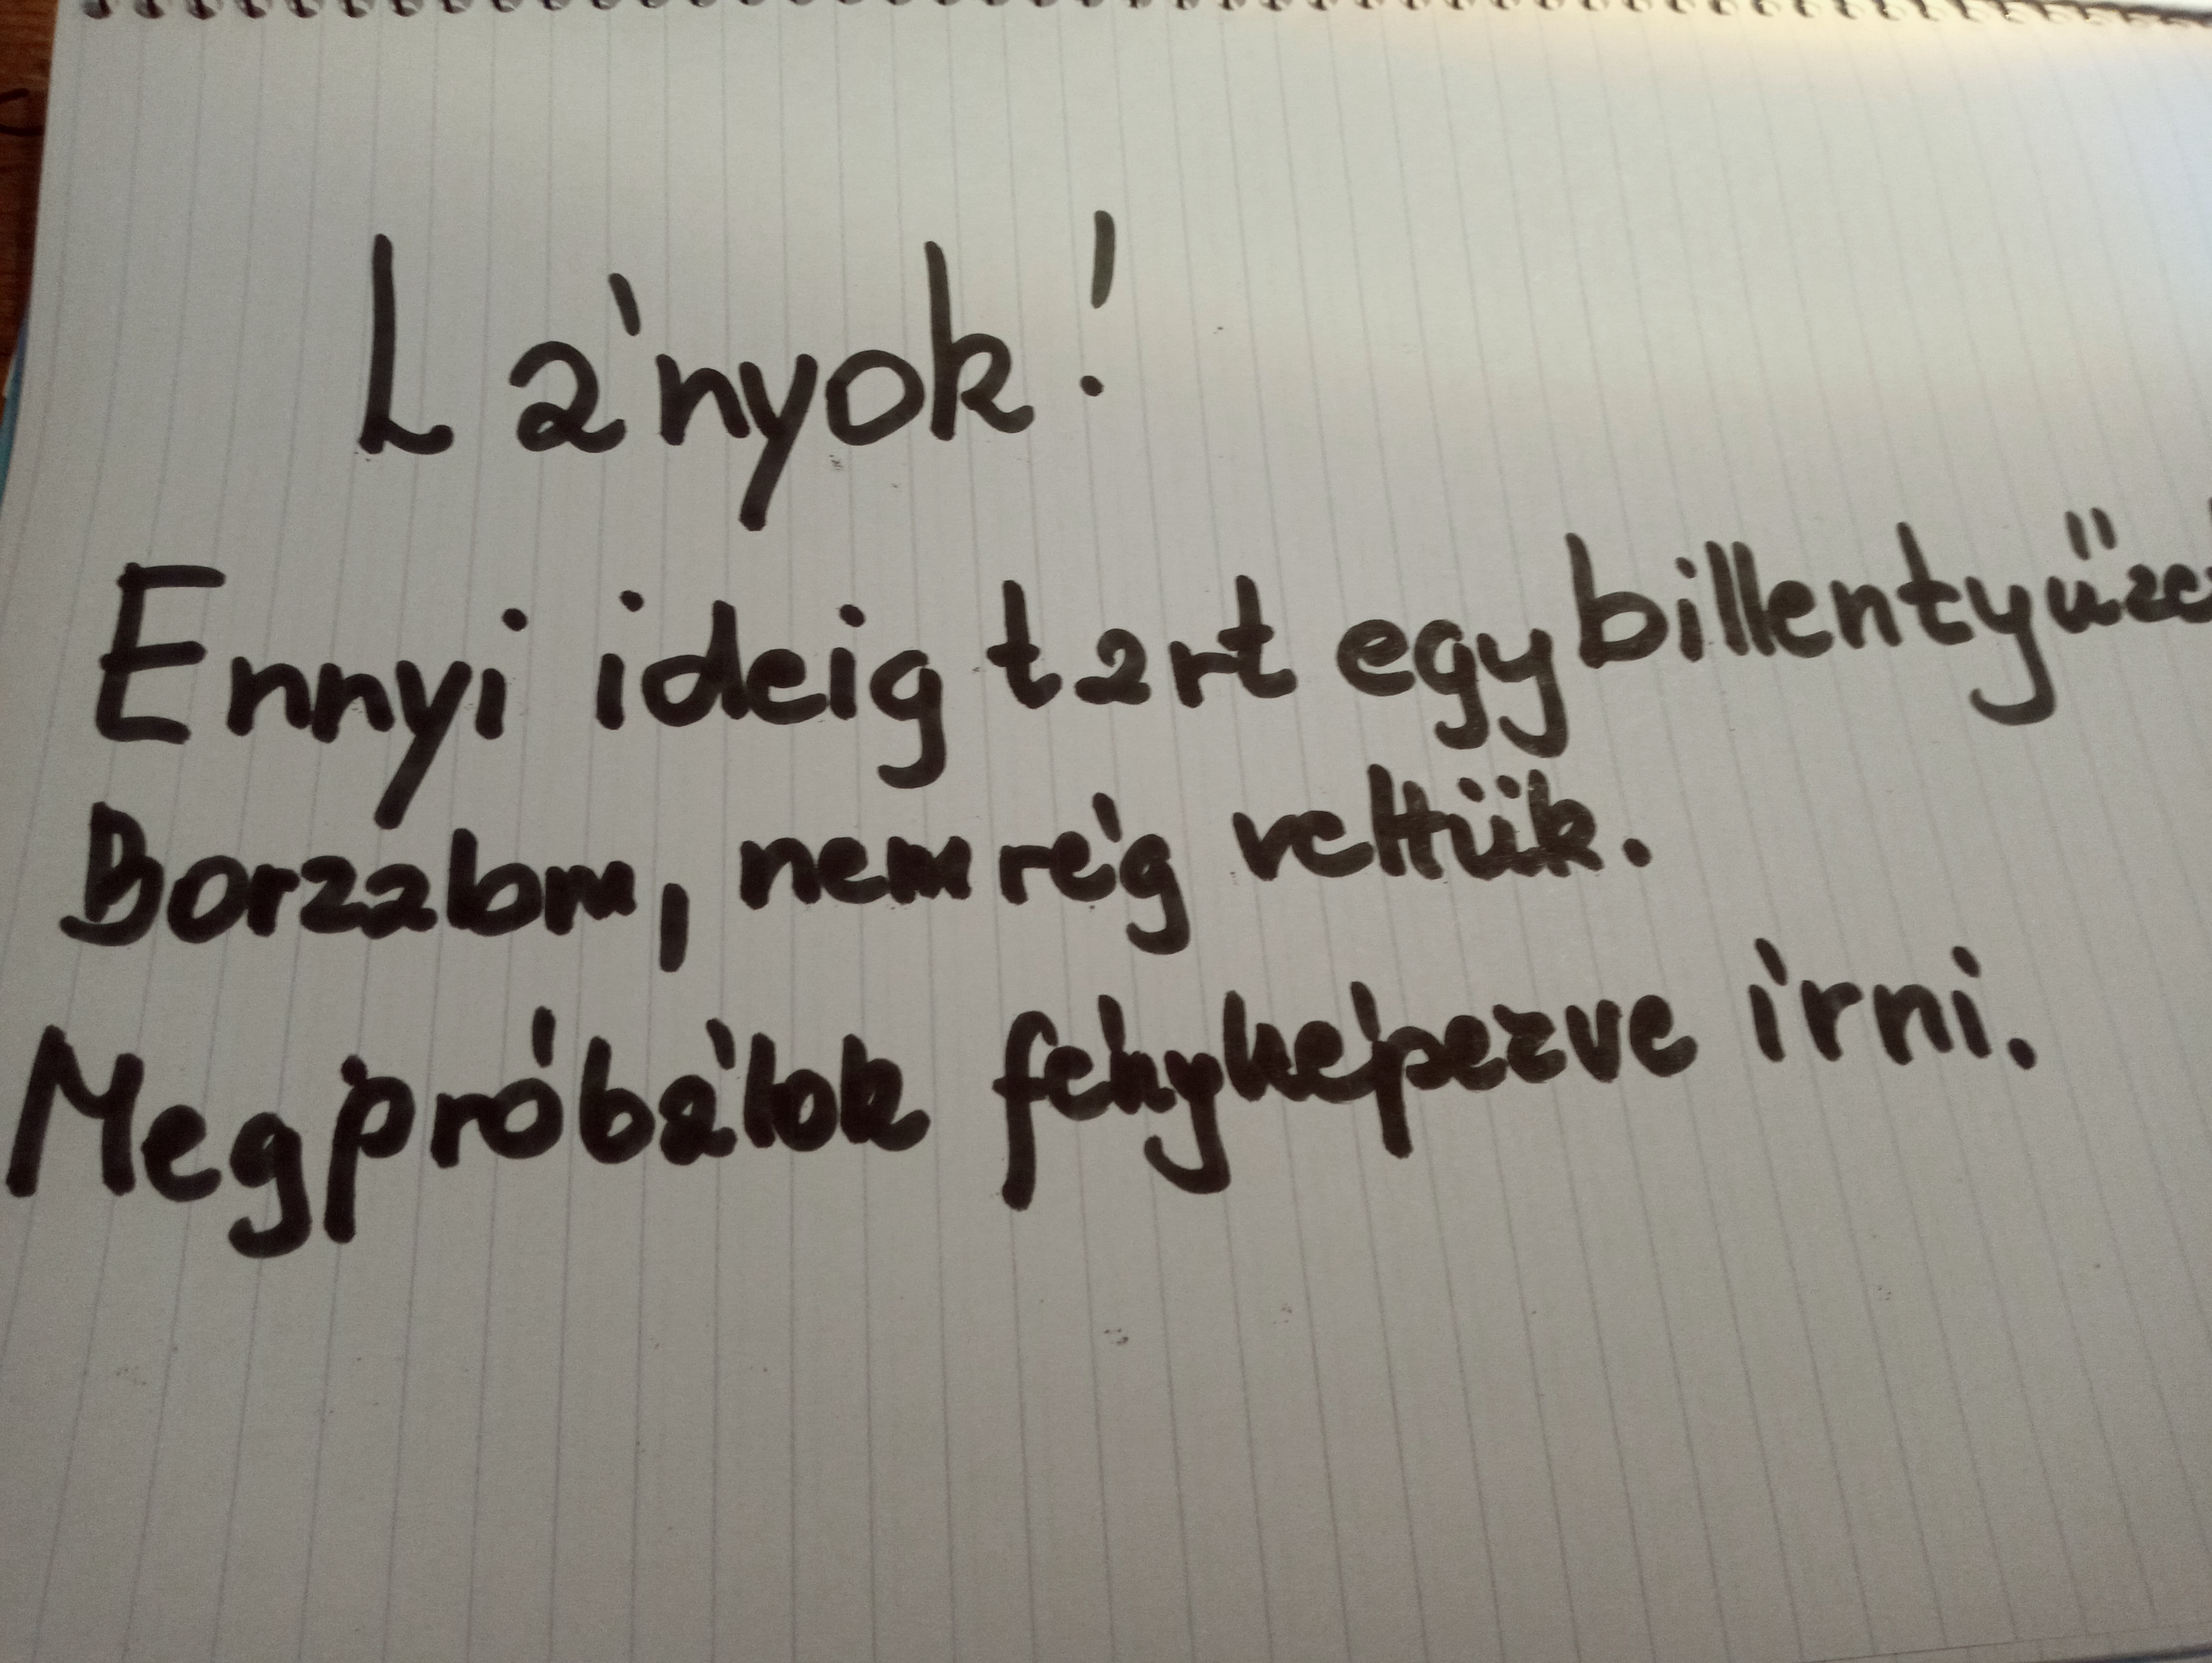 Lányok!
Ennyi ideig tart egy billentyűzet
Borzalom, nemrég vettük.
Megpróbálok fényképezve írni.